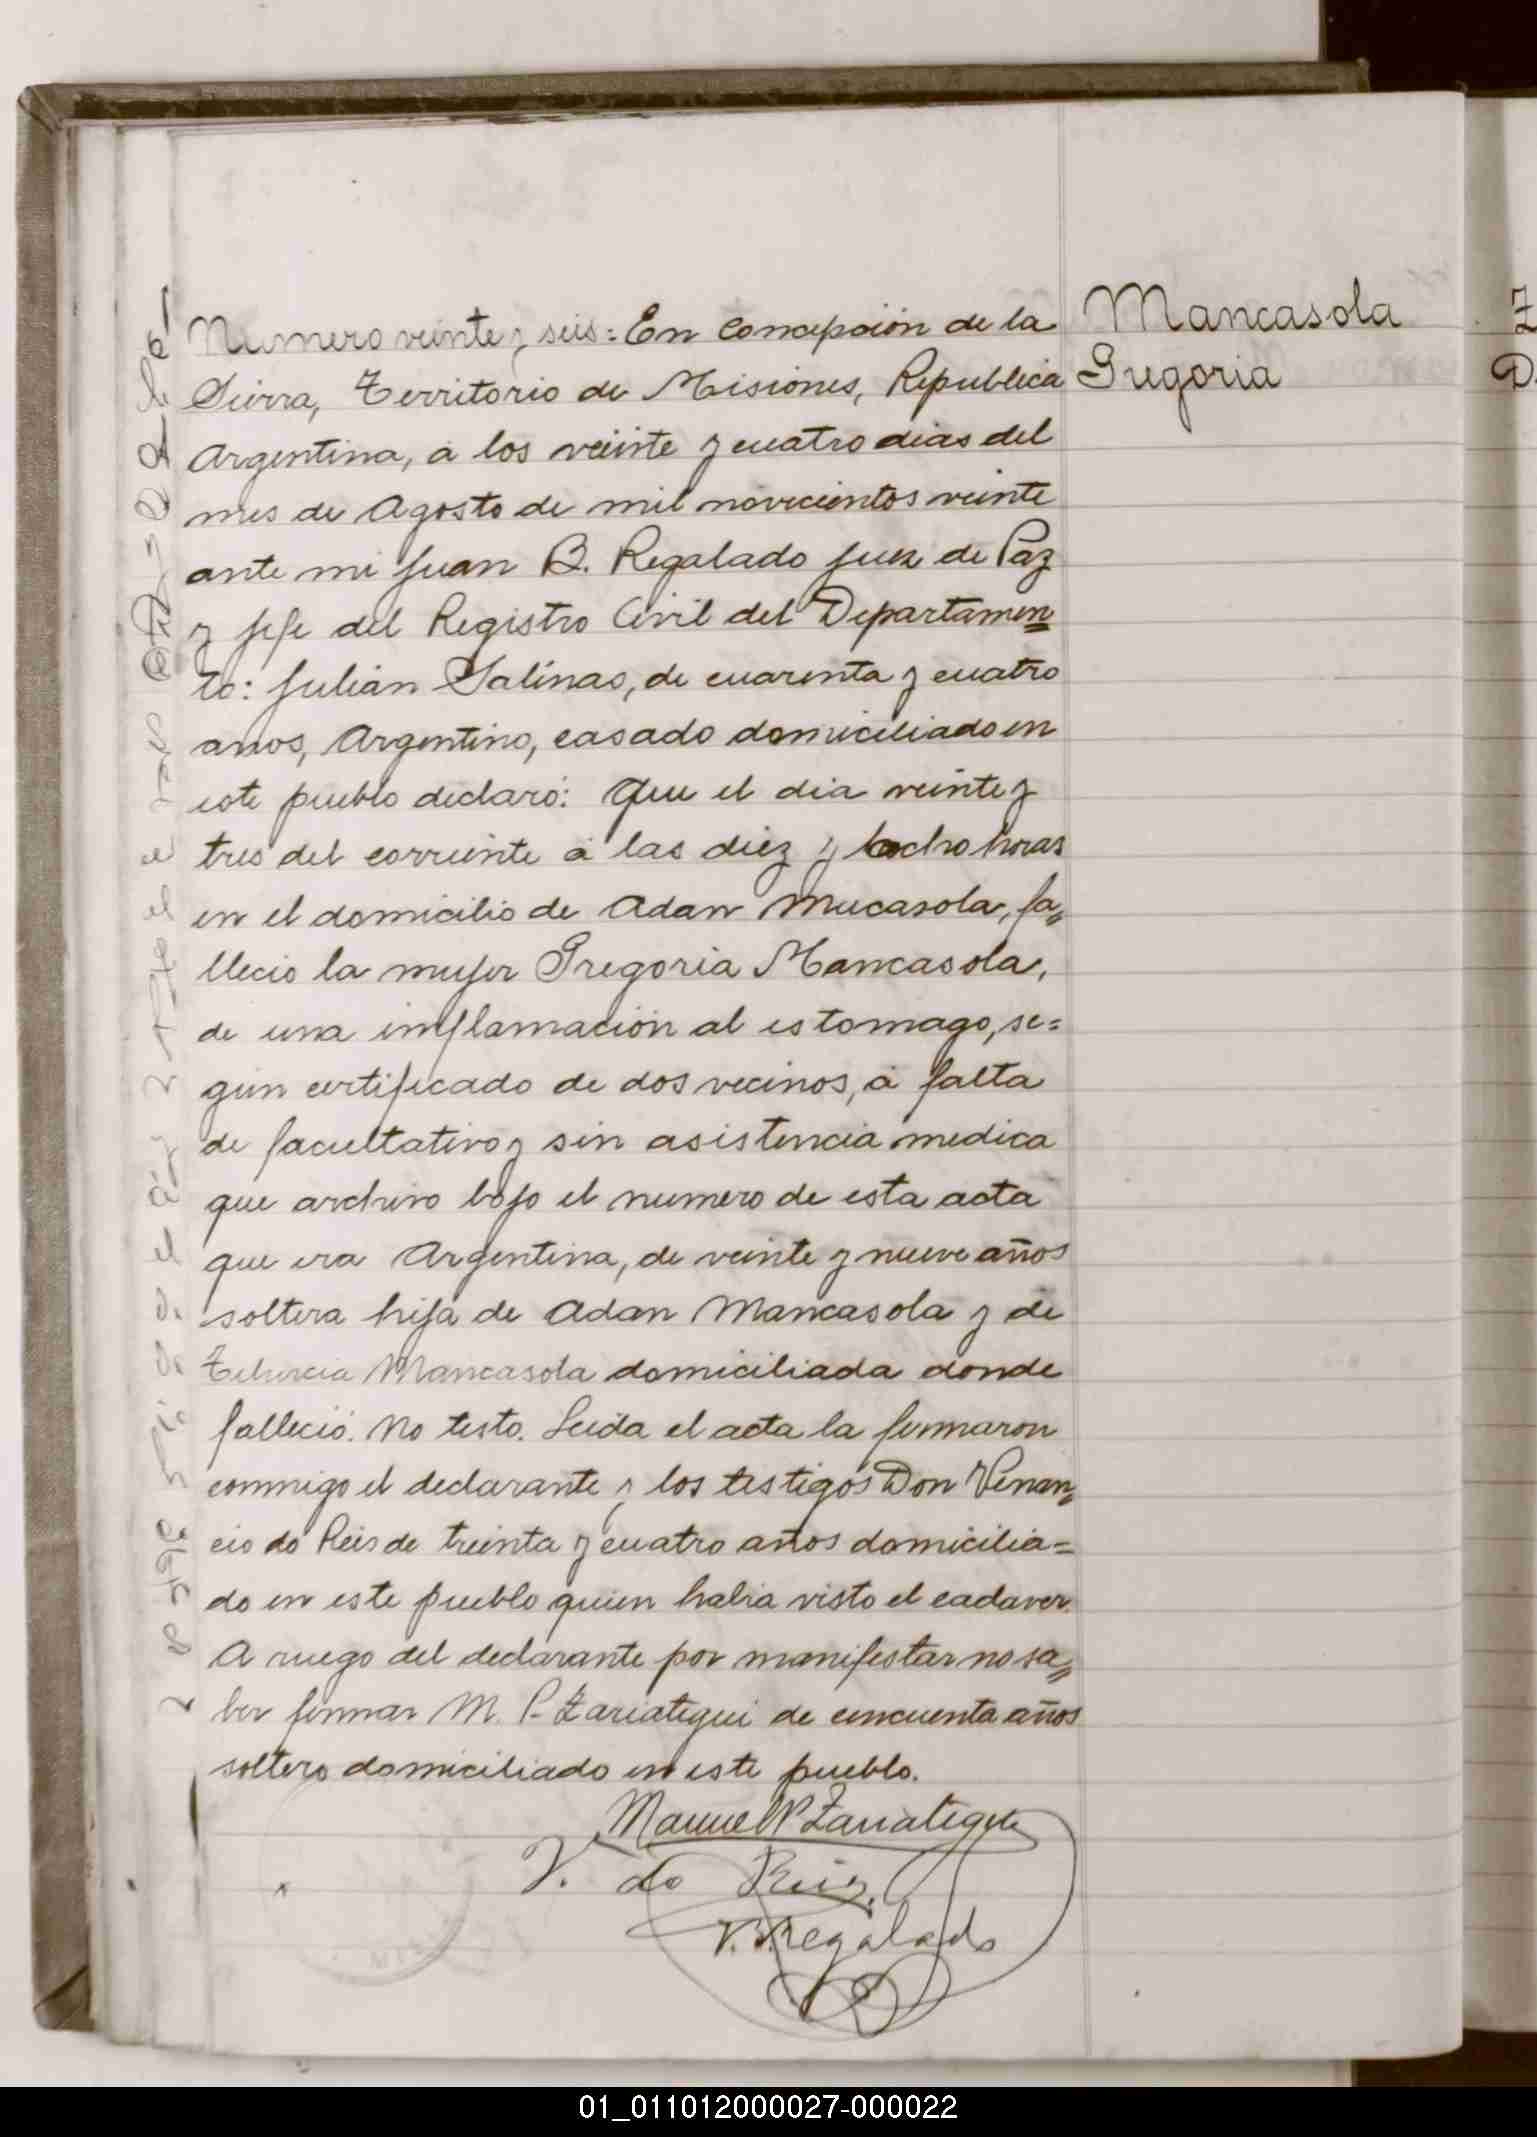 Numero veinte y seis: En Concepción de la
Sierra, Territorio de Misiones, Republica
Argentina, á los veinte y cuatro dias del
mes de Agosto de mil novecientos veinte
ante mi Juan B. Regalado Juez de Paz
y Jefe del Registro Civil del Departamen
to: Julián Salinas, de cuarenta y cuatro
anos, Argentino, casado domiciliado en
este pueblo declaró: Que el dia veinte y
tres del corriente á las diez y ocho horas
en el domicilio de Adan Mucasola, fa„
llecio la mujer Gregoria Mancasola,
de una imflamación al estomago, se=
gún certificado de dos vecinos, á falta
de facultativo y sin asistencia medica
que archivo bajo el numero de esta acta
que era Argentina, de veinte y nueve años
soltera hija de Adan Mancasola y de
Mancasola domiciliada donde
falleció. No testo. Leida el acta la firmaron
conmigo el declarante y los testigos Don Venan„
cio do Reis de treinta y cuatro años domicilia=
do en este pueblo quien habia visto el cadaver.
A ruego del declarante por manifestar no sa„
ber firmar M. P. Zariategui de cincuenta años
soltero domiciliado en este pueblo.
Manuel P Zariategui
V. do Reis
Regalado
Mancasola
Gregoria
01_011012000027-000022